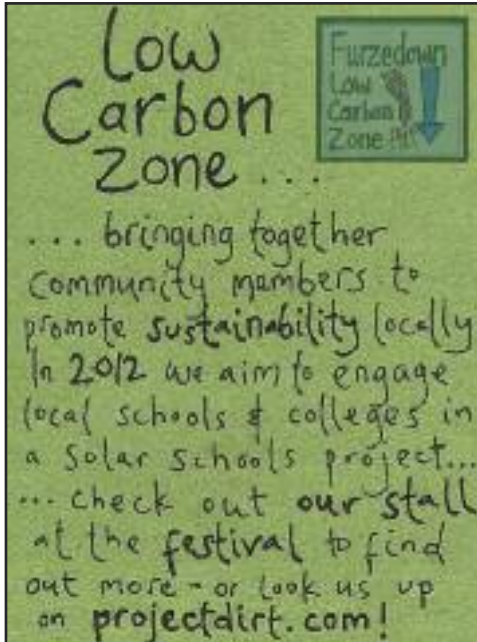 Low
Carbon
Zone...
Furzedown
Low
Carbon
Zone
... bringing together
community members to
promote sustainability locally
In 2012 we aim to engage
local schools & colleges in
a Solar Schools project...
... check out our stall
at the festival to find
out more - or look us up
on projectdirt.com!